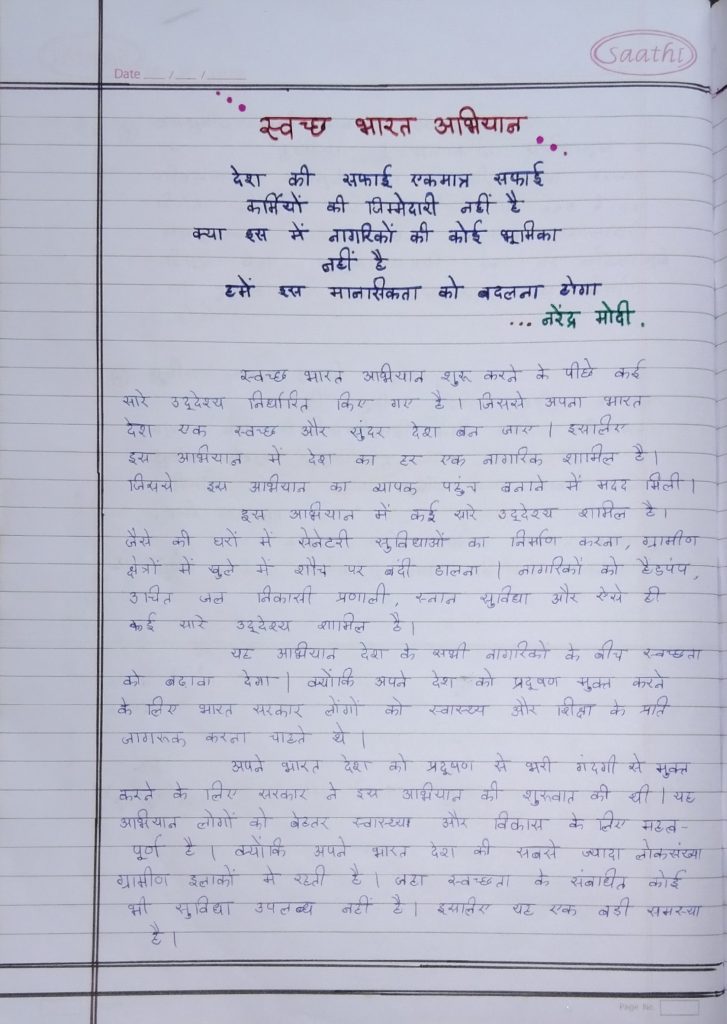 saathi
Date ___ / ___ / _____
स्वच्छ भारत अभियान
देश की सफाई एकमात्र सफाई
कर्मियों की जिम्मेदारी नहीं है
क्या इस में नागरिकों की कोई भूमिका
नहीं है
हमें इस मानसिकता को बदलना होगा
... नरेंद्र मोदी .
स्वच्छ भारत अभियान शुरू करने के पीछे कई
सारे उद्देश्य निर्धारित किए गए है । जिससे अपना भारत
देश एक स्वच्छ और सुंदर देश बन जाए । इसलिए
इस अभियान में देश का हर एक नागरिक शामिल है ।
जिससे इस अभियान का व्यापक पहुंच बनाने में मदद मिली ।
इस अभियान में कई सारे उद्देश्य शामिल है ।
जैसे की घरों में सेनेटरी सुविधाओं का निर्माण करना, ग्रामीण
क्षेत्रों में खुले में शौच पर बंदी डालना । नागरिकों को हैडपंप,
उचित जल निकासी प्रणाली, स्नान सुविधा और ऐसे ही
कई सारे उद्देश्य शामिल है ।
यह अभियान देश के सभी नागरिको के बीच स्वच्छता
को बढावा देगा । क्योंकि अपने देश को प्रदूषण मुक्त करने
के लिए भारत सरकार लोंगों को स्वास्थ्य और शिक्षा के प्रति
जागरूक करना चाहते थे ।
अपने भारत देश को प्रदूषण से भरी गंदगी से मुक्त
करने के लिए सरकार ने इस अभियान की शुरुवात की थी । यह
अभियान लोगों को बेहतर स्वास्थ्या और विकास के लिए महत्व-
पूर्ण है । क्योंकि अपने भारत देश की सबसे ज्यादा लोकसंख्या
ग्रामीण इलाकों मे रहती है । जहा स्वच्छता के संबाधित कोई
भी सुविधा उपलब्ध नहीं है । इसलिए यह एक बडी समस्या
है ।
Page No.